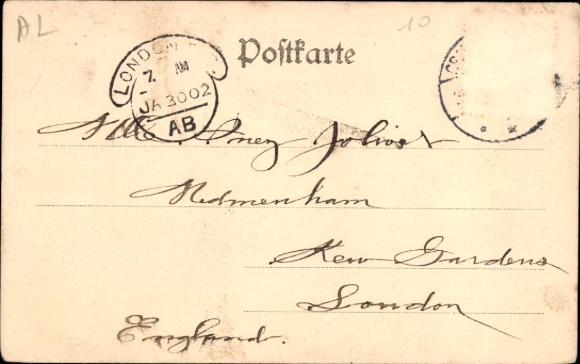 AL
10
Postkarte
LONDON
7. AM
JA 30 02
AB
Mlle. Inez Jolivet
Medmenham
Kew Gardens
London
England.